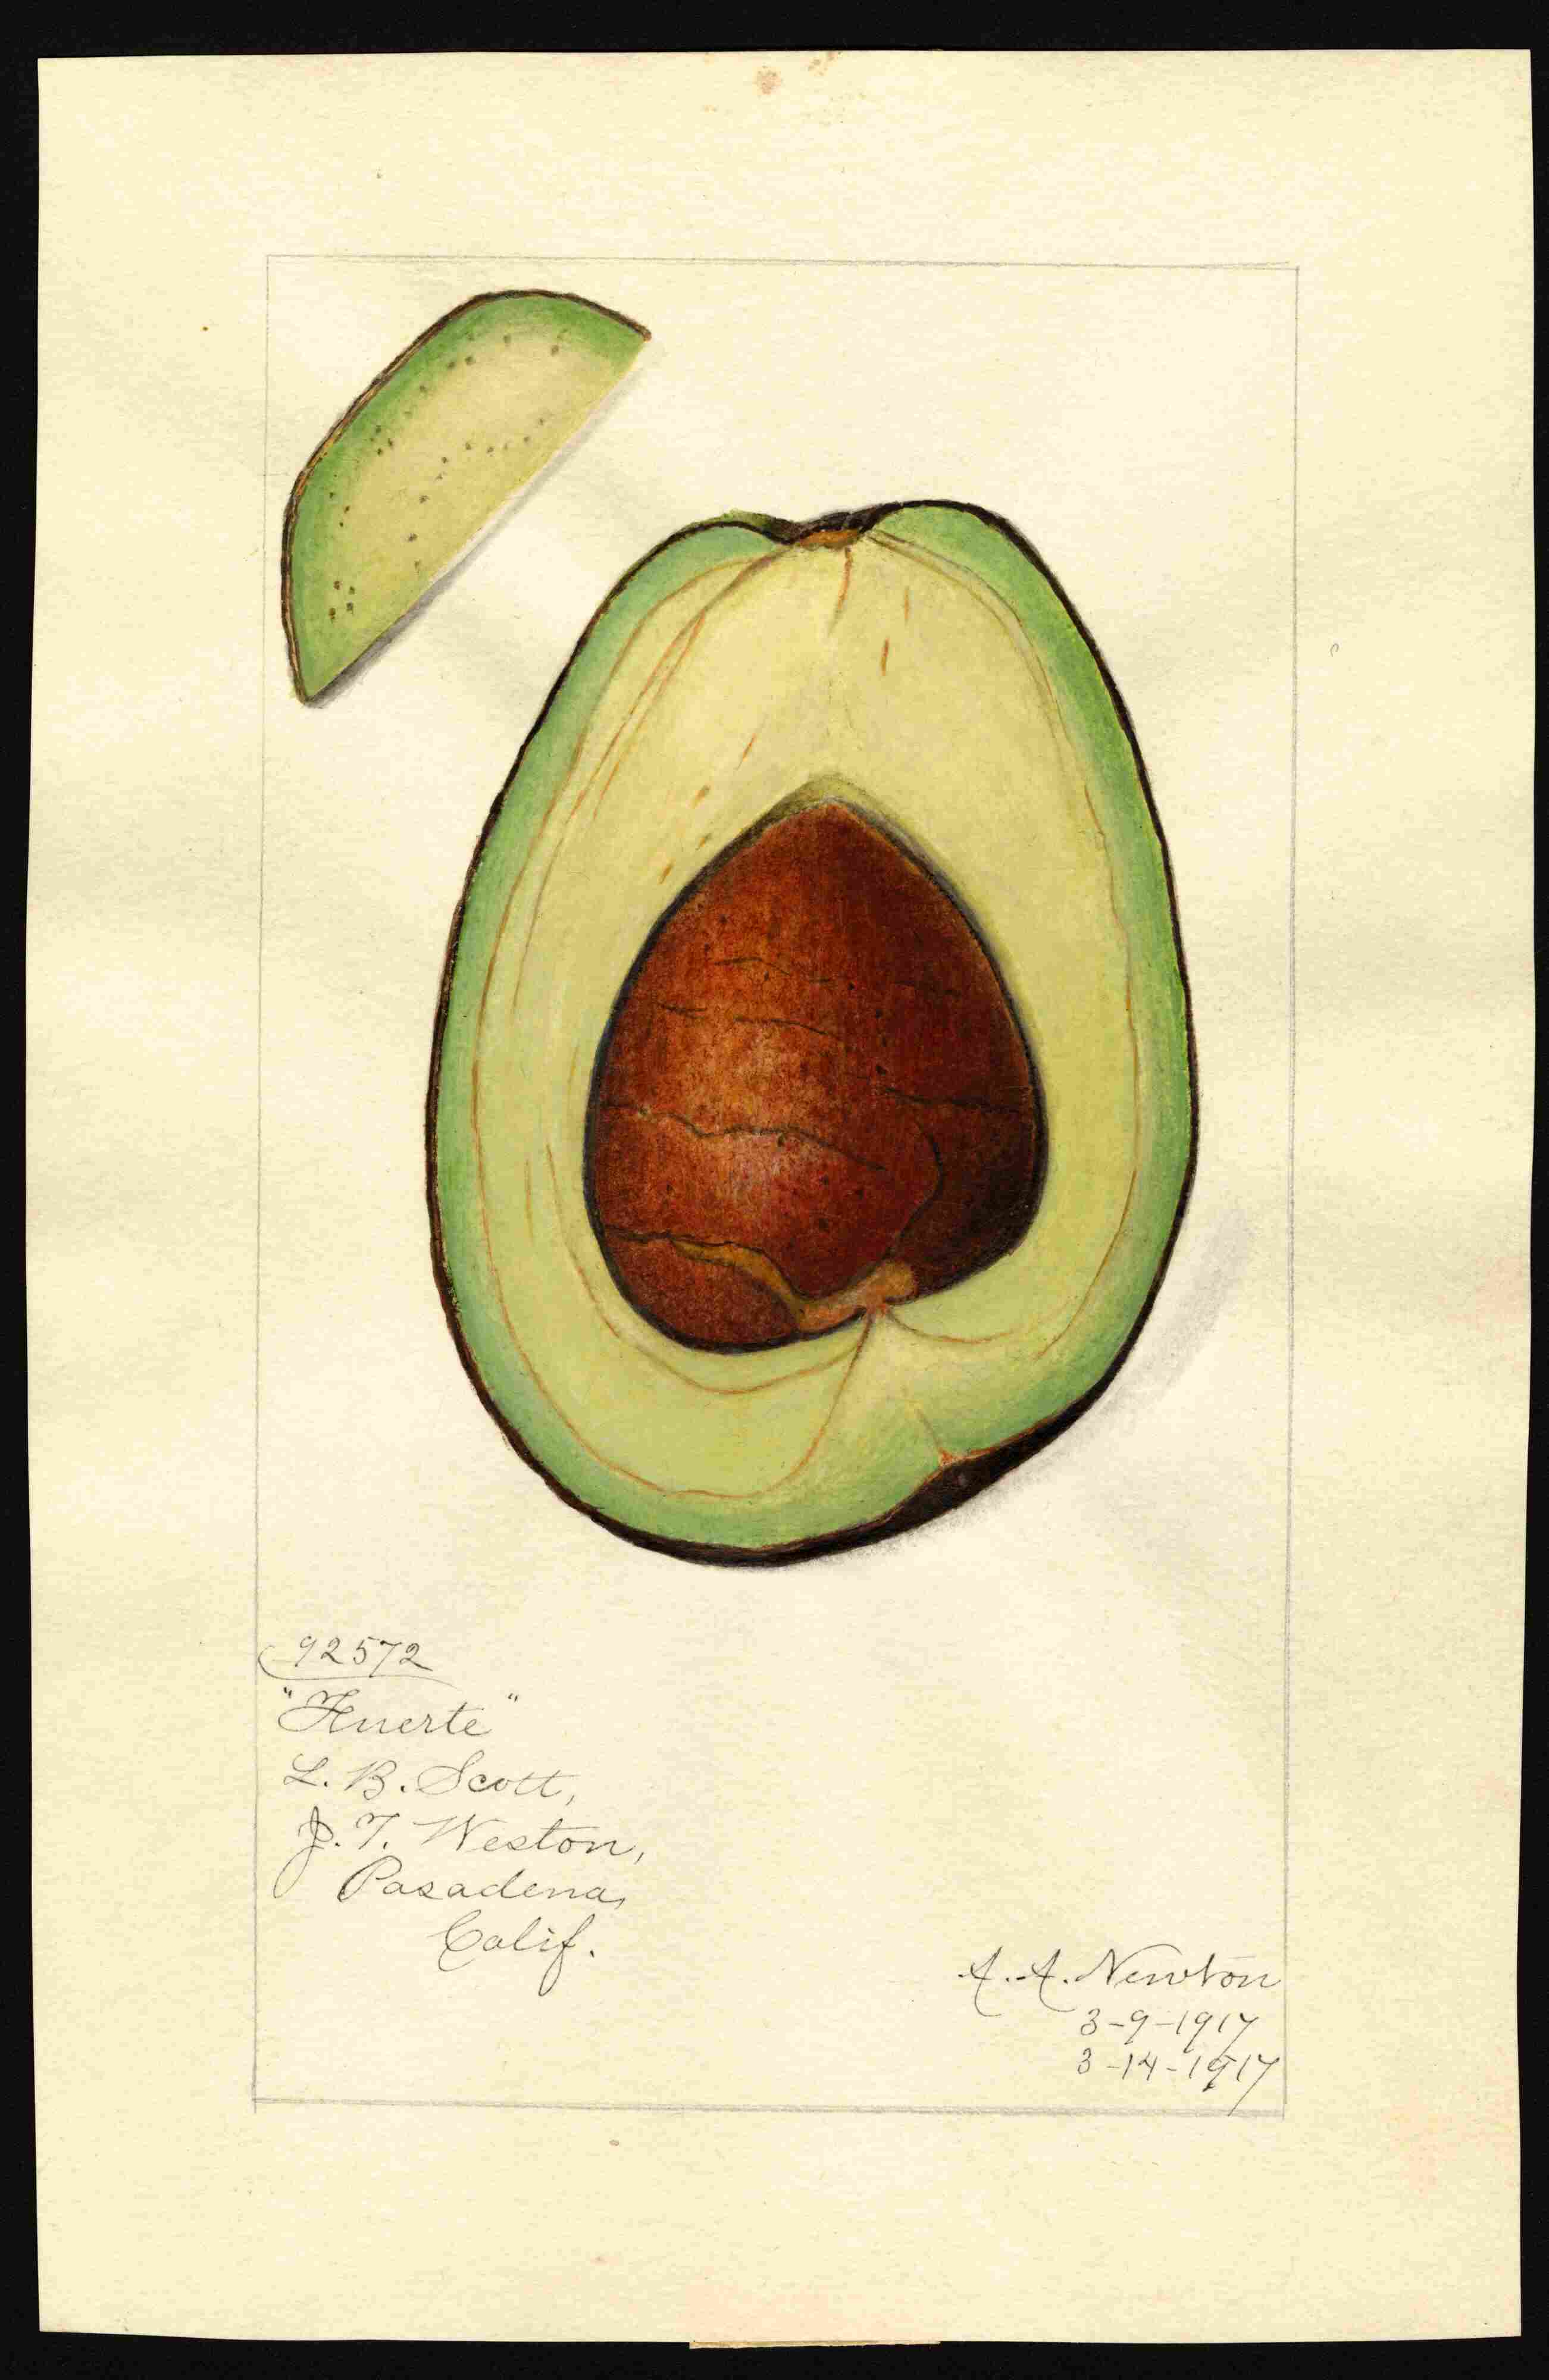 92572
"Fuerte"
L. B. Scott,
J. T. Weston,
Pasadena,
Calif.
A. A. Newton
3-9-1917
3-14-1917